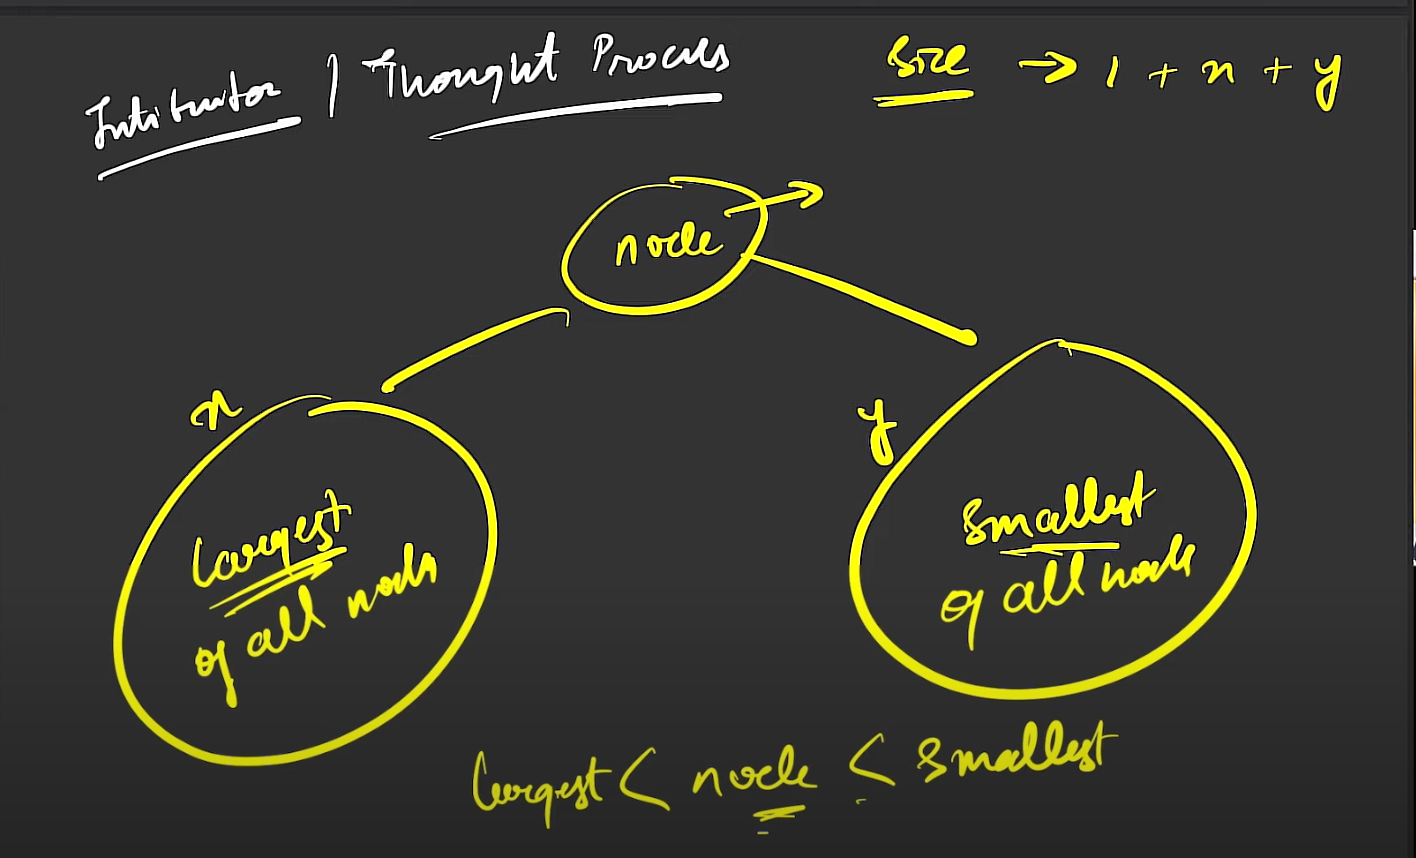 Intituiton / Thought Process
Size → 1 + x + y
node
x
y
Largest
of all nodes
Smallest
of all node
largest < node < smallest